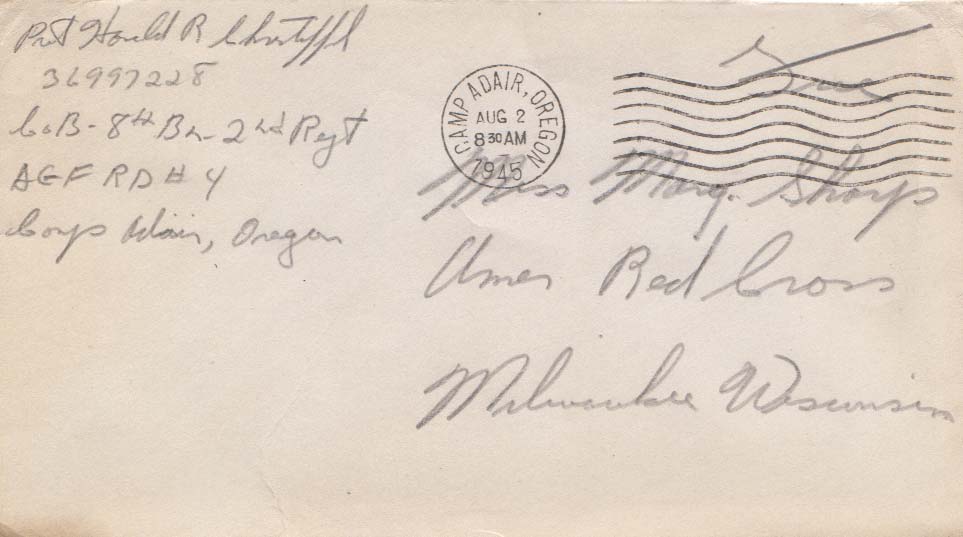 Pvt Harold R
36997228
Co B - 8th Bn - 2nd Regt
AGF RD # 4
Camp Adair, Oregon
Free
CAMP ADAIR, OREGON
AUG 2
8 30 AM
1945
Miss Marg. Sharps
Amer Red Cross
Milwaukee Wisconsin